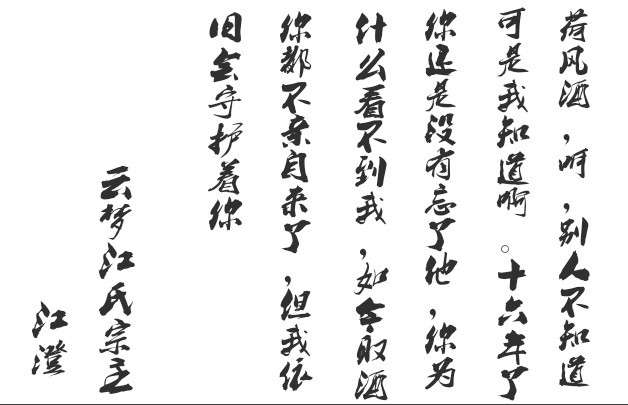 荷风酒，呵，别人不知道
可是我知道啊。十六年了
你还是没有忘了他，你为
什么看不到我，如今取酒
你都不亲自来了，但我依
旧会守护着你
云梦江氏宗主
江澄